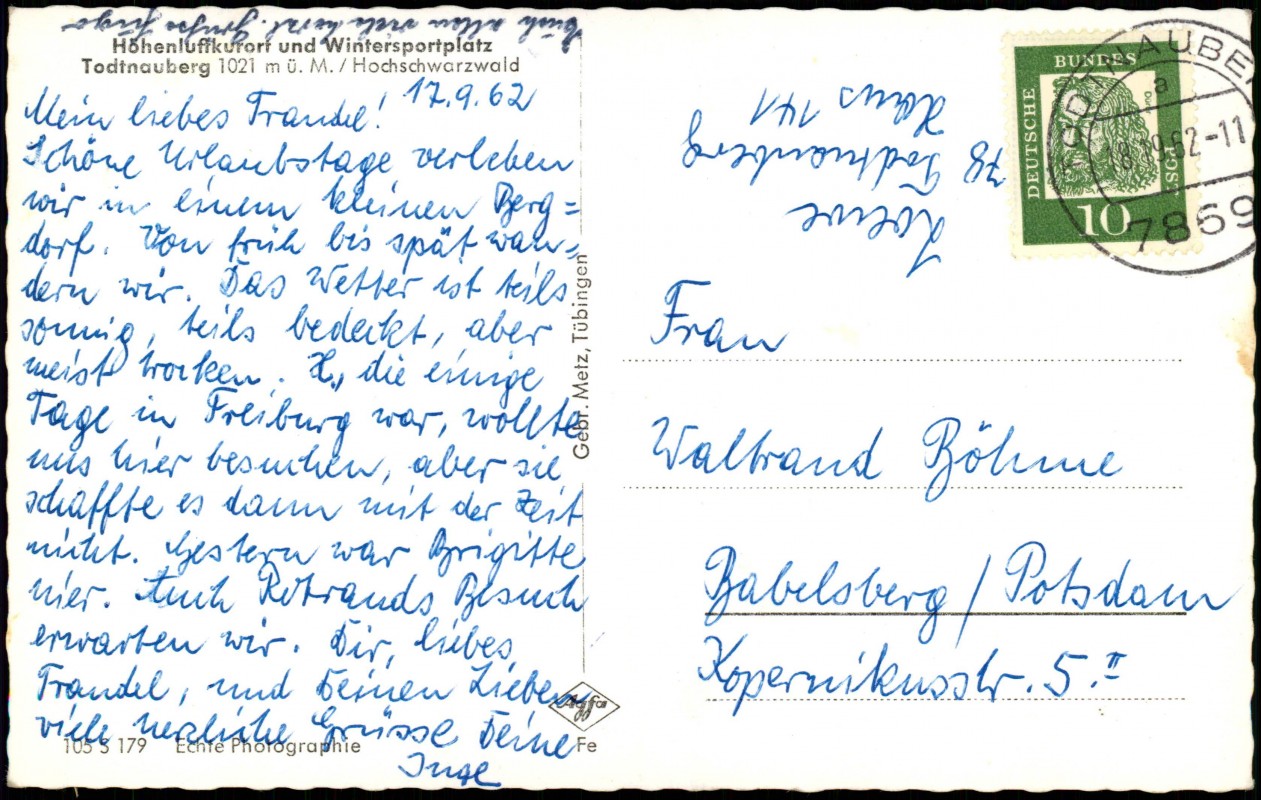 Euch allen viele herzl. Grüsse
Höhenluftkurort und Wintersportplatz
Todtnauberg 1021 m ü. M. / Hochschwarzwald
17.9.62
Mein liebes Traudel!
Schöne Urlaubstage verleben
wir in einem kleinen Berg=
dorf. Von früh bis spät wan=
dern wir. Das Wetter ist teils
sonnig, teils bedeckt, aber
meist trocken. H., die einige
Tage in Freiburg war, wollte
uns hier besuchen, aber sie
schaffte es dann mit der Zeit
nicht. Gestern war Brigitte
hier. Auch Rotrauds Besuch
erwarten wir. Dir, liebes
Traudel, und Deinen Lieben
viele herzliche Grüsse Deine
Inge
105 S 179 Echte Photographie
Agfa
Fe
Gebr. Metz, Tübingen
Loewe
78 Todtnauberg
Haus 141
DEUTSCHE
BUNDES
10
TODTNAUBER
a
18.9.62-11
7869
Frau
Waltraud Böhme
Babelsberg / Potsdam
Kopernikusstr. 5.II